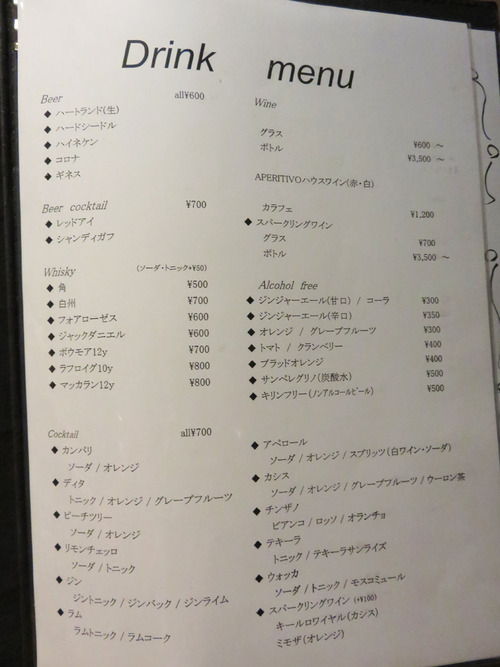 Drink menu
Beer all¥600
◆ ハートランド(生)
◆ ハードシードル
◆ ハイネケン
◆ コロナ
◆ ギネス
Beer cocktail ¥700
◆ レッドアイ
◆ シャンディガフ
Whisky (ソーダ・トニック+¥50)
◆ 角 ¥500
◆ 白州 ¥700
◆ フォアローゼス ¥600
◆ ジャックダニエル ¥600
◆ ボウモア12y ¥700
◆ ラフロイグ10y ¥800
◆ マッカラン12y ¥800
Cocktail all¥700
◆ カンパリ
ソーダ / オレンジ
◆ ディタ
トニック / オレンジ / グレープフルーツ
◆ ピーチツリー
ソーダ / オレンジ
◆ リモンチェッロ
ソーダ / トニック
◆ ジン
ジントニック / ジンバック / ジンライム
◆ ラム
ラムトニック / ラムコーク
Wine
グラス ¥600 ～
ボトル ¥3,500 ～
APERITIVOハウスワイン(赤・白)
カラフェ ¥1,200
◆ スパークリングワイン
グラス ¥700
ボトル ¥3,500 ～
Alcohol free
◆ ジンジャーエール(甘口) / コーラ ¥300
◆ ジンジャーエール(辛口) ¥350
◆ オレンジ / グレープフルーツ ¥300
◆ トマト / クランベリー ¥400
◆ ブラッドオレンジ ¥400
◆ サンペレグリノ(炭酸水) ¥500
◆ キリンフリー(ノンアルコールビール) ¥500
◆ アペロール
ソーダ / オレンジ / スプリッツ(白ワイン・ソーダ)
◆ カシス
ソーダ / オレンジ / グレープフルーツ / ウーロン茶
◆ チンザノ
ビアンコ / ロッソ / オランチョ
◆ テキーラ
トニック / テキーラサンライズ
◆ ウォッカ
ソーダ / トニック / モスコミュール
◆ スパークリングワイン (+¥100)
キールロワイヤル(カシス)
ミモザ(オレンジ)